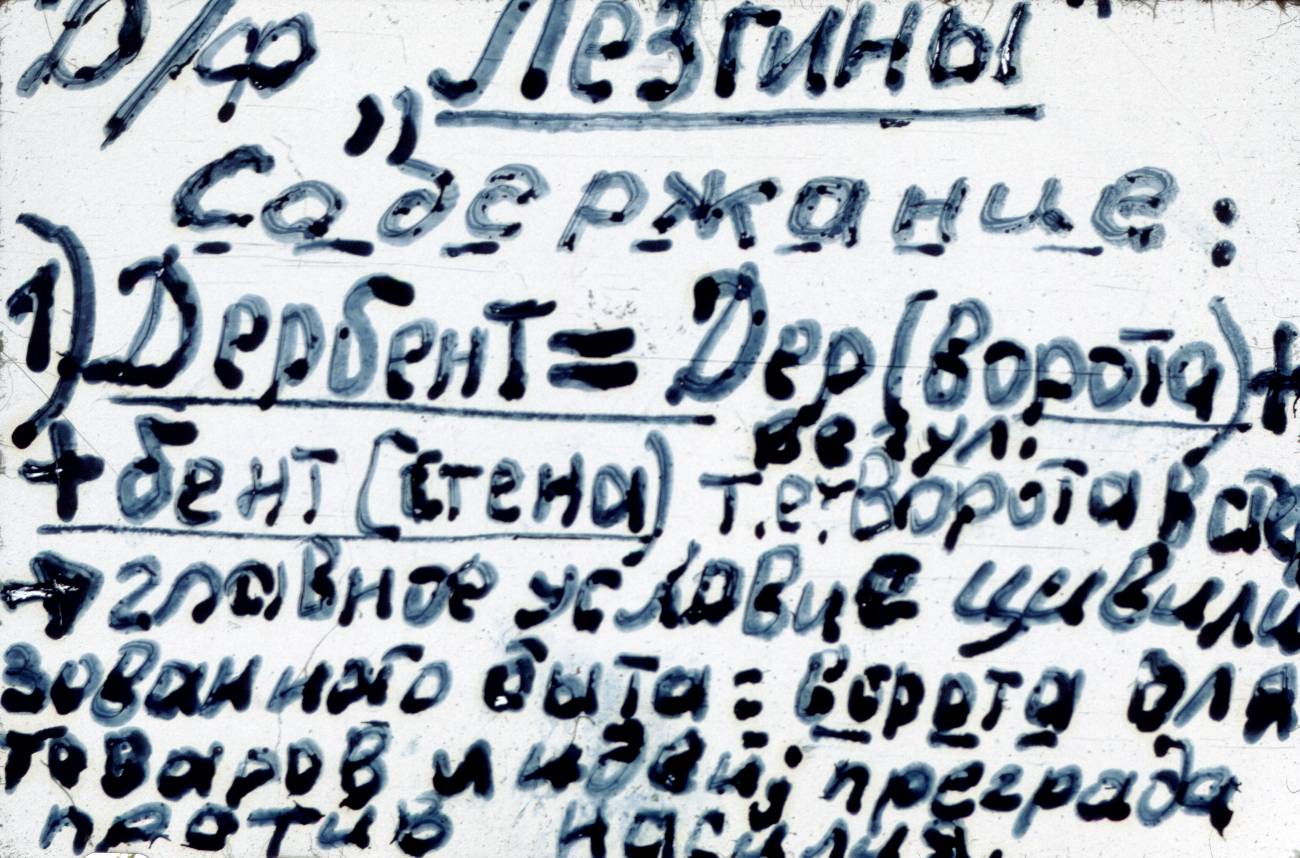 Д/ф „Лезгины"
Содержание:
1) Дербент = Дер (ворота) +
+ бент (стена) т.е. ворота в сте
→ главное условие цивили
зованного быта: ворота для
товаров и идей; преграда
против насилия.